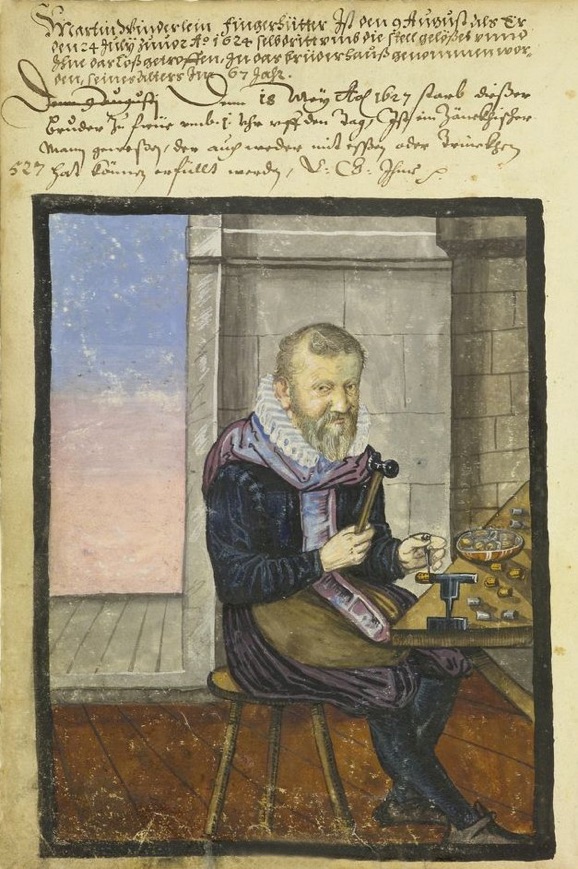 Martin Winderlein Fingerhütter Ist den 9 August als Er
den 24 July zuuor Ao 1624 selbdritt umb die stell gelößet vnnd
Ihne das Loß getroffen, In das bruderhauß genommen wor-
den, seines alters Im 67 Jahr.
Den 18 Mey Ao 1627 starb dießer
bruder zu frue umb 1 Uhr uff den tag, Ist ein Zänckhischer
mann geweßen, der auch weder mit eßen oder Trinckhen
527 hat können erfüllt werden,